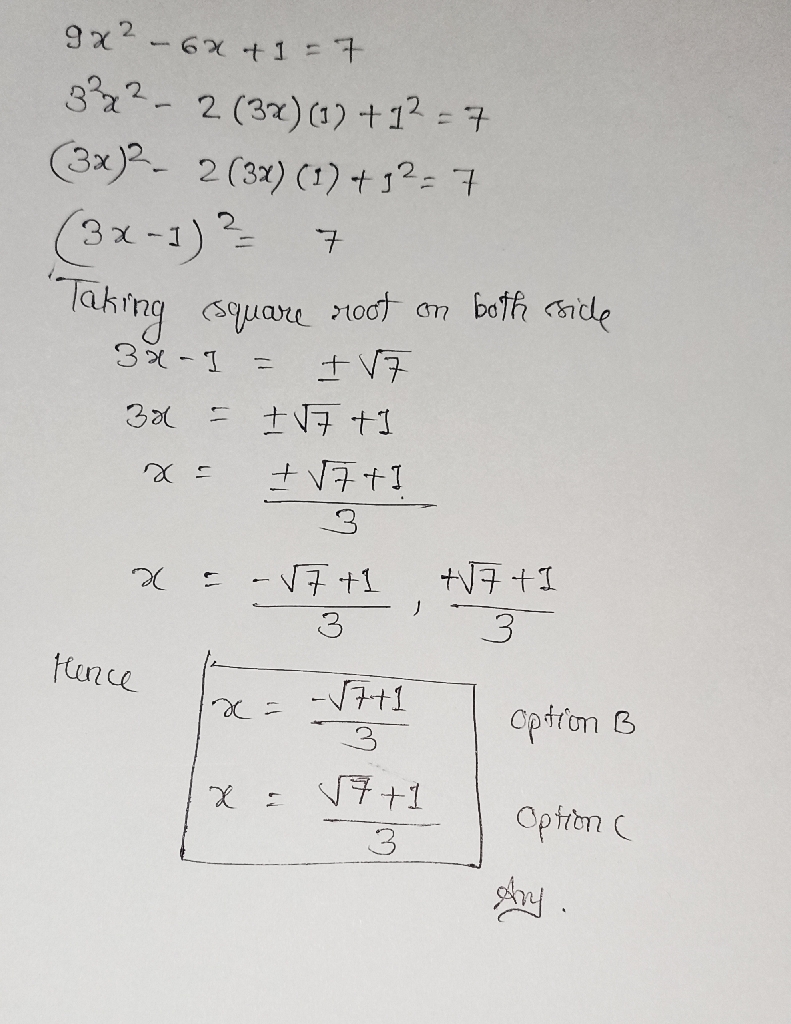 9x² - 6x + 1 = 7
3²x² - 2(3x)(1) + 1² = 7
(3x)² - 2(3x)(1) + 1² = 7
(3x - 1)² = 7
Taking square root on both side
3x - 1 = ± √7
3x = ± √7 + 1
x = (± √7 + 1)/3
x = (-√7 + 1)/3 , (+√7 + 1)/3
Hence
x = (-√7 + 1)/3 Option B
x = (√7 + 1)/3 Option C